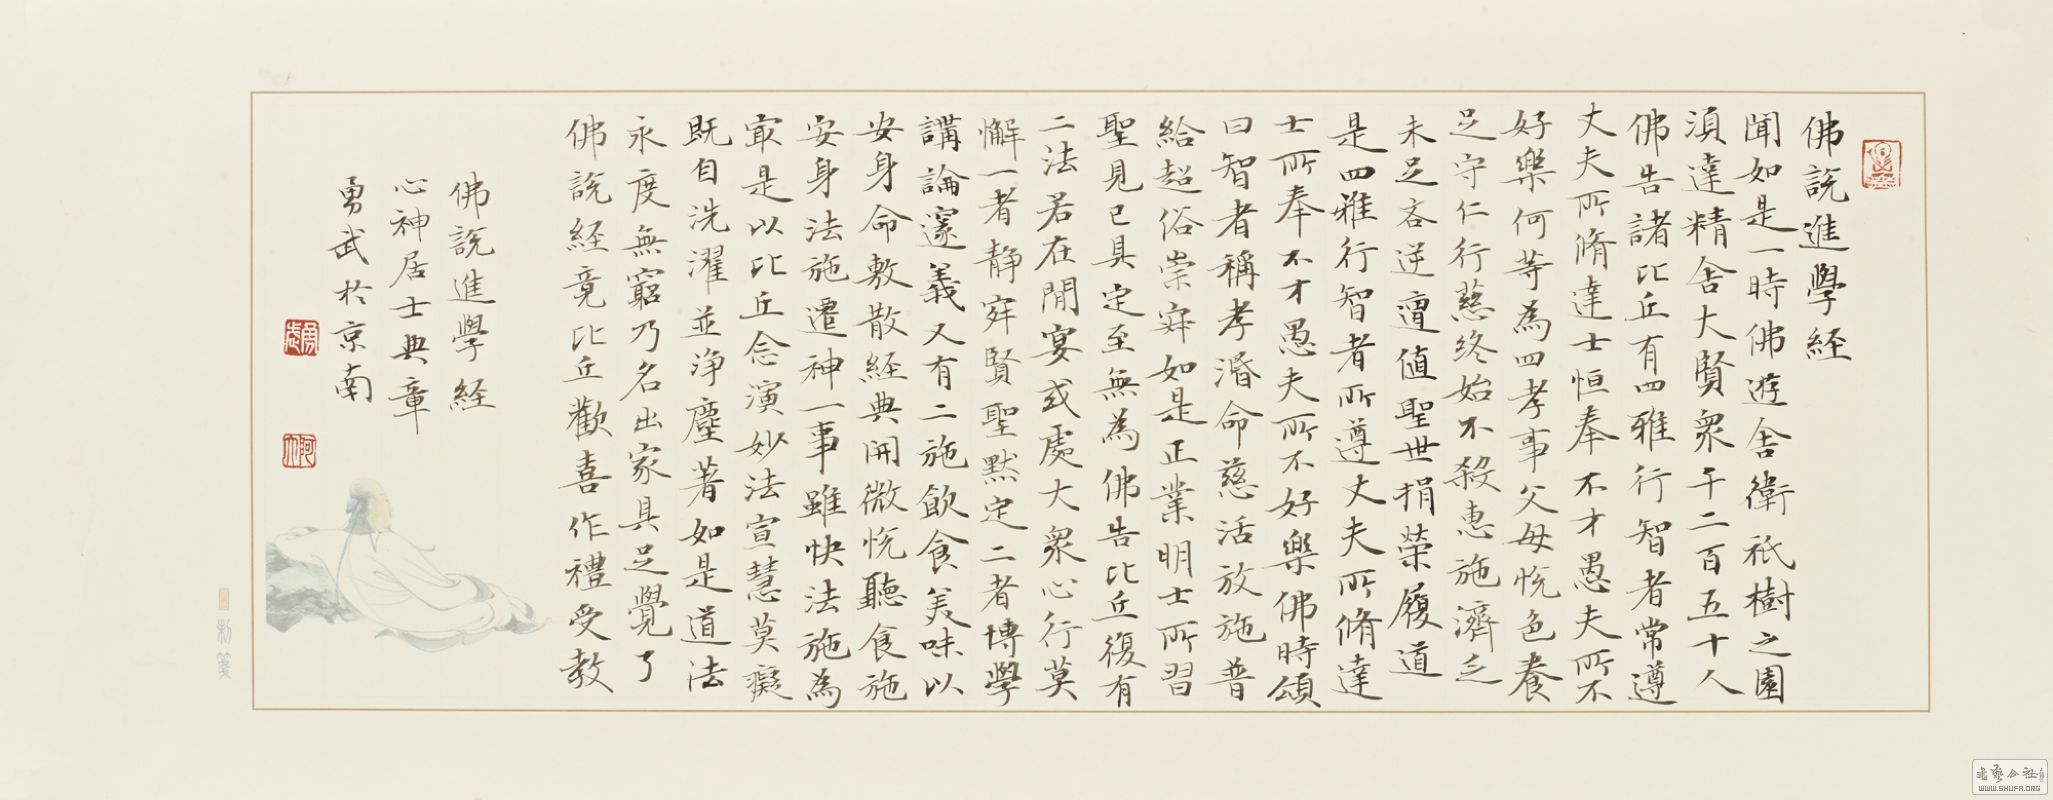 佛説進學経
聞如是一時佛遊舎衛祇樹之園
湏達精舎大賢衆千二百五十人
佛告諸比丘有四雅行智者常遵
丈夫所脩達士恒奉不才愚夫所不
好樂何等為四孝事父母悦色養
足守仁行慈終始不殺惠施濟乏
未足吝逆邅值聖世捐榮履道
是四雅行智者所遵丈夫所脩達
士所奉不才愚夫所不好樂佛時頌
曰智者稱孝湣命慈活放施普
給超俗崇寂如是正業明士所習
聖見已具定至無為佛告比丘復有
二法若在閒宴或處大衆心行莫
懈一者静寂賢聖黙定二者博學
講論邃義又有二施飲食美味以
安身命敷散経典開微悦聽食施
安身法施遷神一事雖快法施為
㝡是以比丘念演妙法宣慧莫癡
既自洗濯並浄塵著如是道法
永度無窮乃名出家具足覺了
佛説経竟比丘歡喜作禮受教
佛説進學経
心神居士典章
勇武於京南
勇武
制箋
書藝公社
WWW.SHUFA.ORG